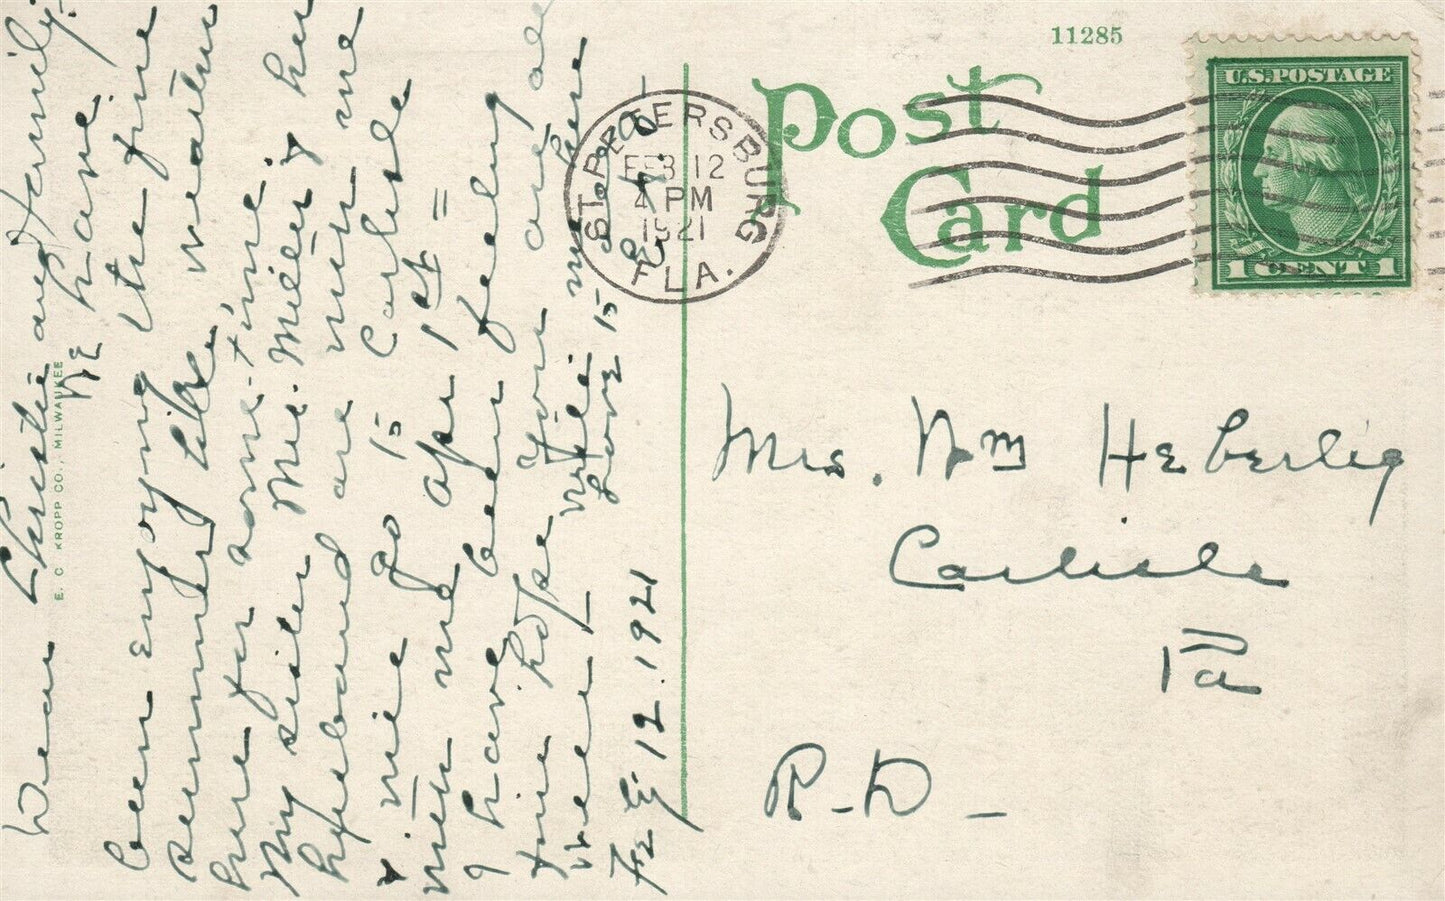 11285
Post
Card
U.S. POSTAGE
1 CENT 1
ST. PETERSBURG
FEB 12
4 PM
1921
FLA.
Mrs. Wm Heberlig
Carlisle
Pa
R-D-
E. C. KROPP CO., MILWAUKEE
Dear and Family
We have
been enjoying the fine
summer like weather
here for some time.
My sister Mrs. Miller & her
husband are with me
& will go to Carlisle
with me Apr 1st =
I have been feeling
fine hope you are all
well Will with
Love to all
Feb 12. 1921